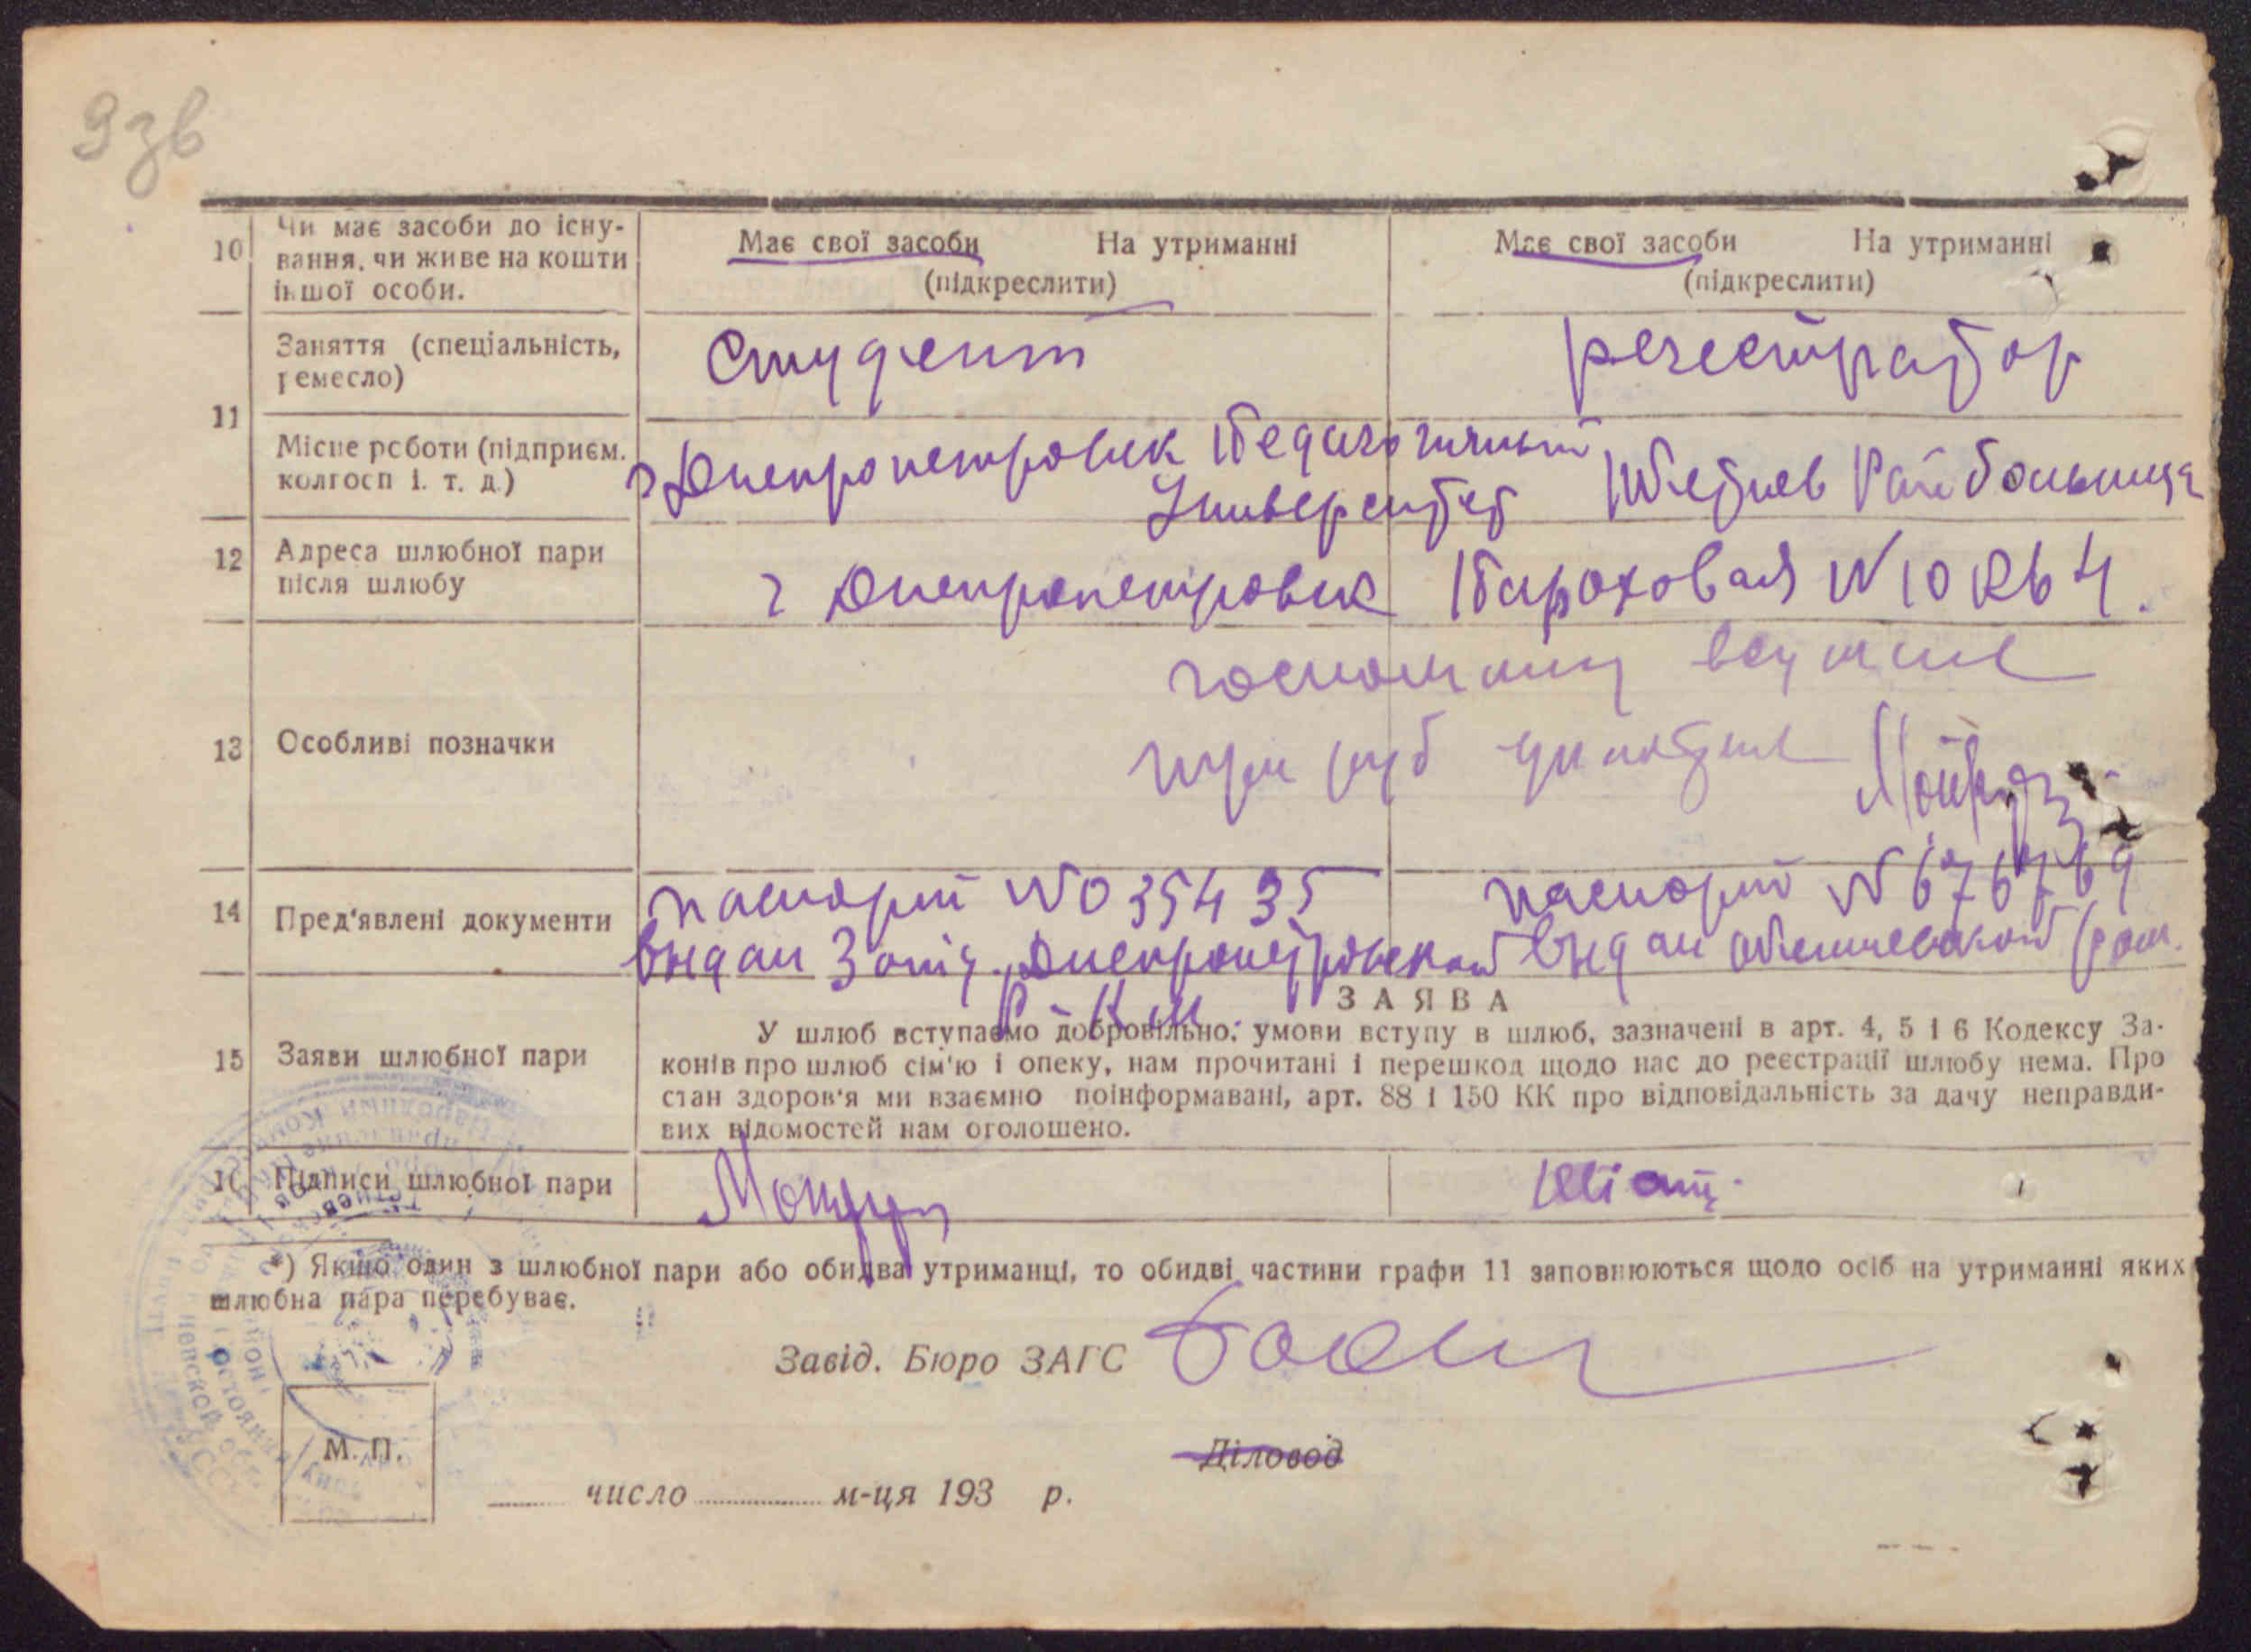 9зв
10 Чи має засоби до існу-
вання, чи живе на кошти
іншої особи.
Має свої засоби На утриманні
(підкреслити)
Має свої засоби На утриманні
(підкреслити)
11 Заняття (спеціальність,
ремесло)
Студент
регистратор
Місце роботи (підприєм.
колгосп і. т. д.)
г Днепропетровск Педагогичный
Университет
Райбольница
12 Адреса шлюбної пари
після шлюбу
г Днепропетровск №10 кв 4.
13 Особливі позначки
госпошлину
три руб
14 Пред'явлені документи
паспорт №035435
выдан 3 отд. Днепропетровской
Р-К.М.
паспорт №676769
выдан
15 Заяви шлюбної пари
ЗАЯВА
У шлюб вступаємо добровільно; умови вступу в шлюб, зазначені в арт. 4, 5 і 6 Кодексу За-
конів про шлюб сім'ю і опеку, нам прочитані і перешкод щодо нас до реєстрації шлюбу нема. Про
стан здоров'я ми взаємно поінформавані, арт. 88 і 150 КК про відповідальність за дачу неправди-
вих відомостей нам оголошено.
16 Підписи шлюбної пари
*) Якщо один з шлюбної пари або обидва утриманці, то обидві частини графи 11 заповнюються щодо осіб на утриманні яких
шлюбна пара перебуває.
Завід. Бюро ЗАГС
Діловод
М. П.
число м-ця 193 р.